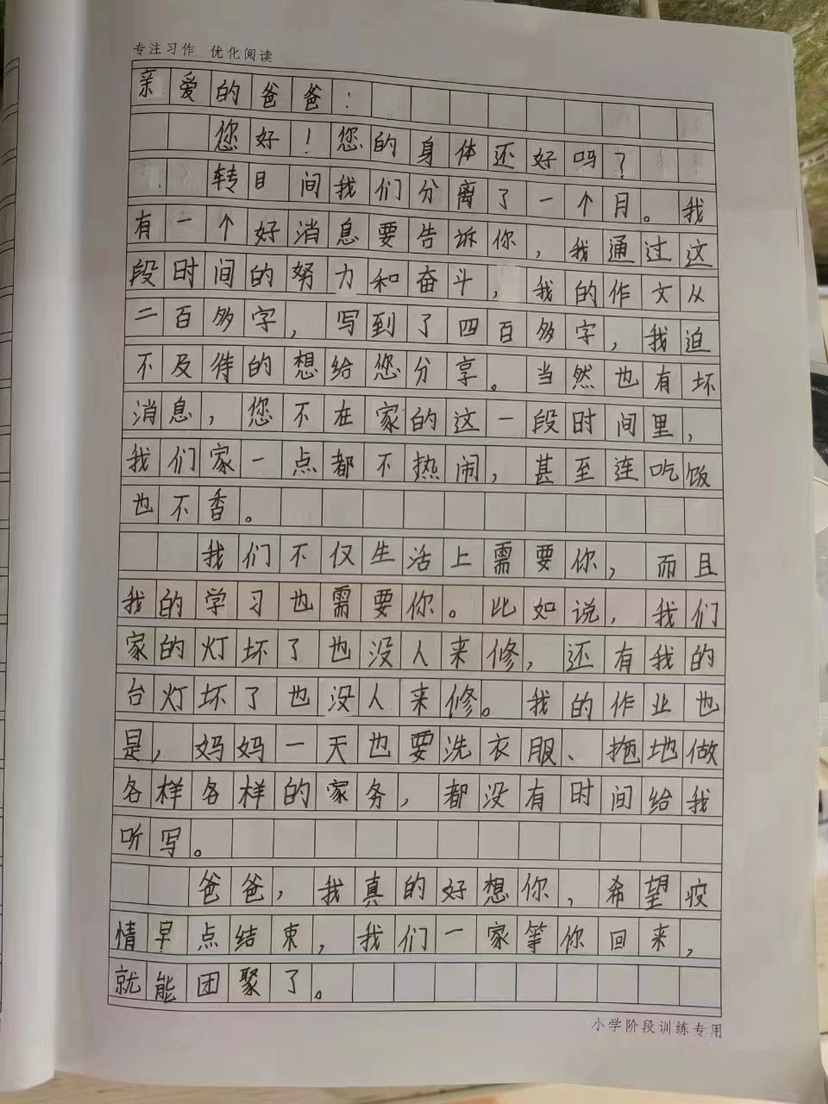 专注习作 优化阅读
亲爱的爸爸:
您好!您的身体还好吗?
转目间我们分离了一个月。我
有一个好消息要告诉你,我通过这
段时间的努力和奋斗,我的作文从
二百多字,写到了四百多字,我迫
不及待的想给您分享。当然也有坏
消息,您不在家的这一段时间里,
我们家一点都不热闹,甚至连吃饭
也不香。
我们不仅生活上需要你,而且
我的学习也需要你。比如说,我们
家的灯坏了也没人来修,还有我的
台灯坏了也没人来修。我的作业也
是,妈妈一天也要洗衣服、拖地做
各样各样的家务,都没有时间给我
听写。
爸爸,我真的好想你,希望疫
情早点结束,我们一家等你回来,
就能团聚了。
小学阶段训练专用